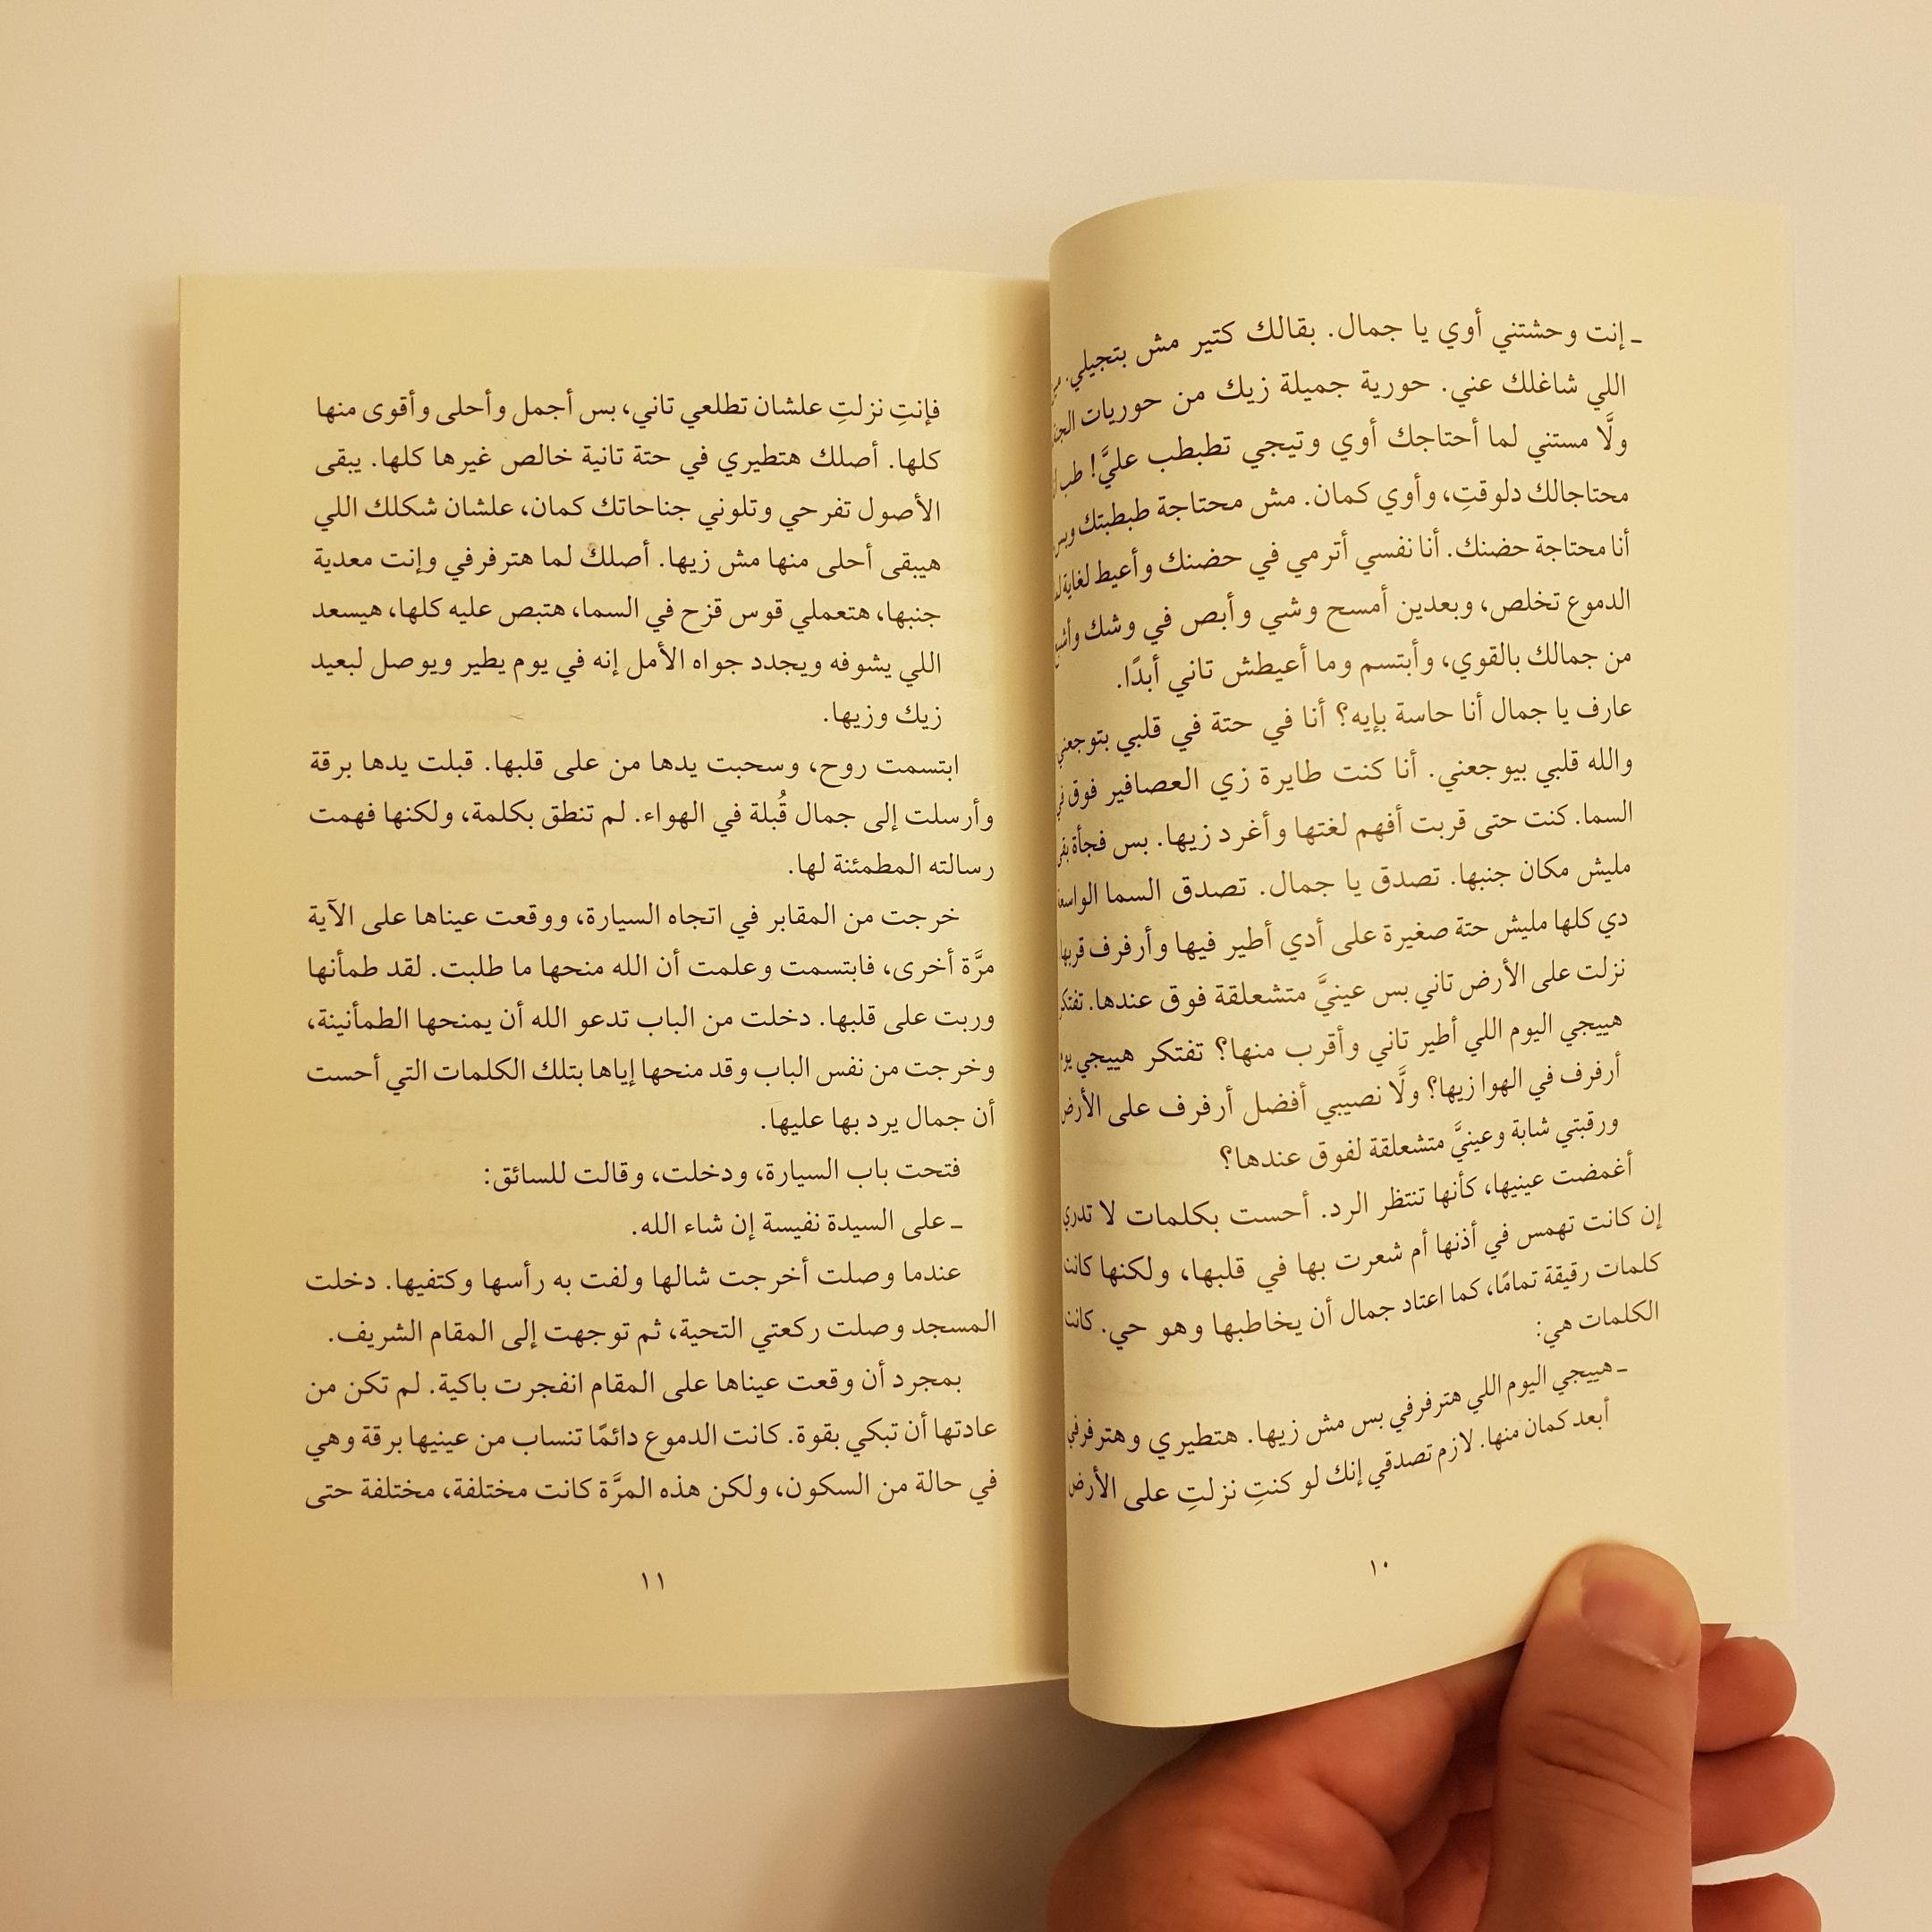 ـ إنت وحشتني أوي يا جمال. بقالك كتير مش بتجيلي.
اللي شاغلك عني. حورية جميلة زيك من حوريات
ولَّا مستني لما أحتاجك أوي وتيجي تطبطب عليَّ! طب
محتاجالك دلوقتِ، وأوي كمان. مش محتاجة طبطبتك وبس
أنا محتاجة حضنك. أنا نفسي أترمي في حضنك وأعيط لغاية
الدموع تخلص، وبعدين أمسح وشي وأبص في وشك
من جمالك بالقوي، وأبتسم وما أعيطش تاني أبدًا.
عارف يا جمال أنا حاسة بإيه؟ أنا في حتة في قلبي بتوجعني
والله قلبي بيوجعني. أنا كنت طايرة زي العصافير فوق
السما. كنت حتى قربت أفهم لغتها وأغرد زيها. بس فجأة
مليش مكان جنبها. تصدق يا جمال. تصدق السما الواسعة
دي كلها مليش حتة صغيرة على أدي أطير فيها وأرفرف
نزلت على الأرض تاني بس عينيَّ متشعلقة فوق عندها.
هييجي اليوم اللي أطير تاني وأقرب منها؟ تفتكر هييجي
أرفرف في الهوا زيها؟ ولَّا نصيبي أفضل أرفرف على الأرض
ورقبتي شابة وعينيَّ متشعلقة لفوق عندها؟
أغمضت عينيها، كأنها تنتظر الرد. أحست بكلمات لا تدري
إن كانت تهمس في أذنها أم شعرت بها في قلبها، ولكنها كانت
كلمات رقيقة تمامًا، كما اعتاد جمال أن يخاطبها وهو حي. كانت
الكلمات هي:
ـ هييجي اليوم اللي هترفرفي بس مش زيها. هتطيري وهترفرفي
أبعد كمان منها. لازم تصدقي إنك لو كنتِ نزلتِ على الأرض
١٠
فإنتِ نزلتِ علشان تطلعي تاني، بس أجمل وأحلى وأقوى منها
كلها. أصلك هتطيري في حتة تانية خالص غيرها كلها. يبقى
الأصول تفرحي وتلوني جناحاتك كمان، علشان شكلك اللي
هيبقى أحلى منها مش زيها. أصلك لما هترفرفي وإنت معدية
جنبها، هتعملي قوس قزح في السما، هتبص عليه كلها، هيسعد
اللي يشوفه ويجدد جواه الأمل إنه في يوم يطير ويوصل لبعيد
زيك وزيها.
ابتسمت روح، وسحبت يدها من على قلبها. قبلت يدها برقة
وأرسلت إلى جمال قُبلة في الهواء. لم تنطق بكلمة، ولكنها فهمت
رسالته المطمئنة لها.
خرجت من المقابر في اتجاه السيارة، ووقعت عيناها على الآية
مرَّة أخرى، فابتسمت وعلمت أن الله منحها ما طلبت. لقد طمأنها
وربت على قلبها. دخلت من الباب تدعو الله أن يمنحها الطمأنينة،
وخرجت من نفس الباب وقد منحها إياها بتلك الكلمات التي أحست
أن جمال يرد بها عليها.
فتحت باب السيارة، ودخلت، وقالت للسائق:
ـ على السيدة نفيسة إن شاء الله.
عندما وصلت أخرجت شالها ولفت به رأسها وكتفيها. دخلت
المسجد وصلت ركعتي التحية، ثم توجهت إلى المقام الشريف.
بمجرد أن وقعت عيناها على المقام انفجرت باكية. لم تكن من
عادتها أن تبكي بقوة. كانت الدموع دائمًا تنساب من عينيها برقة وهي
في حالة من السكون، ولكن هذه المرَّة كانت مختلفة، مختلفة حتى
١١